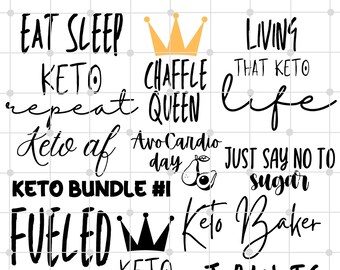 EAT SLEEP
KETO
repeat
CHAFFLE
QUEEN
LIVING
THAT KETO
life
Keto af
AvoCardio
day
JUST SAY NO TO
sugar
KETO BUNDLE #1
FUELED
KETO
Keto Baker